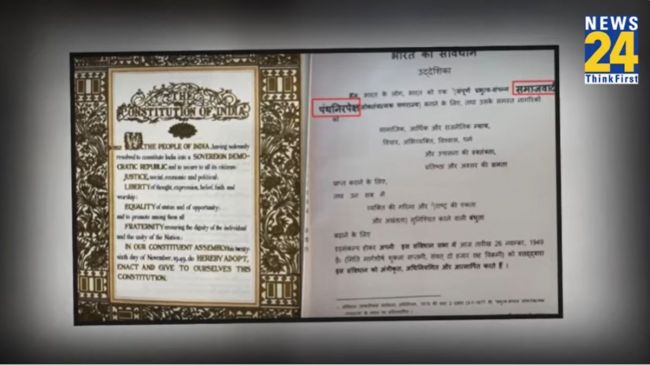 NEWS
24
ThinkFirst
THE
CONSTITUTION OF INDIA
WE, THE PEOPLE OF INDIA, having solemnly
resolved to constitute India into a SOVEREIGN DEMO-
CRATIC REPUBLIC and to secure to all its citizens:
JUSTICE, social, economic and political;
LIBERTY of thought, expression, belief, faith and
worship;
EQUALITY of status and of opportunity;
and to promote among them all
FRATERNITY assuring the dignity of the individual
and the unity of the Nation;
IN OUR CONSTITUENT ASSEMBLY this twenty-
sixth day of November, 1949, do HEREBY ADOPT,
ENACT AND GIVE TO OURSELVES THIS
CONSTITUTION.
भारत का संविधान
उद्देशिका
हम, भारत के लोग, भारत को एक संपूर्ण प्रभुत्व-संपन्न समाजवादी
पंथनिरपेक्ष लोकतंत्रात्मक गणराज्य बनाने के लिए, तथा उसके समस्त नागरिकों
को
सामाजिक, आर्थिक और राजनैतिक न्याय,
विचार, अभिव्यक्ति, विश्वास, धर्म
और उपासना की स्वतंत्रता,
प्रतिष्ठा और अवसर की समता
प्राप्त कराने के लिए,
तथा उन सब में
व्यक्ति की गरिमा और राष्ट्र की एकता
और अखंडता सुनिश्चित करने वाली बंधुता
बढ़ाने के लिए
दृढ़संकल्प होकर अपनी इस संविधान सभा में आज तारीख 26 नवम्बर, 1949
ई० (मिति मार्गशीर्ष शुक्ला सप्तमी, संवत् दो हजार छह विक्रमी) को एतद्द्वारा
इस संविधान को अंगीकृत, अधिनियमित और आत्मार्पित करते हैं ।